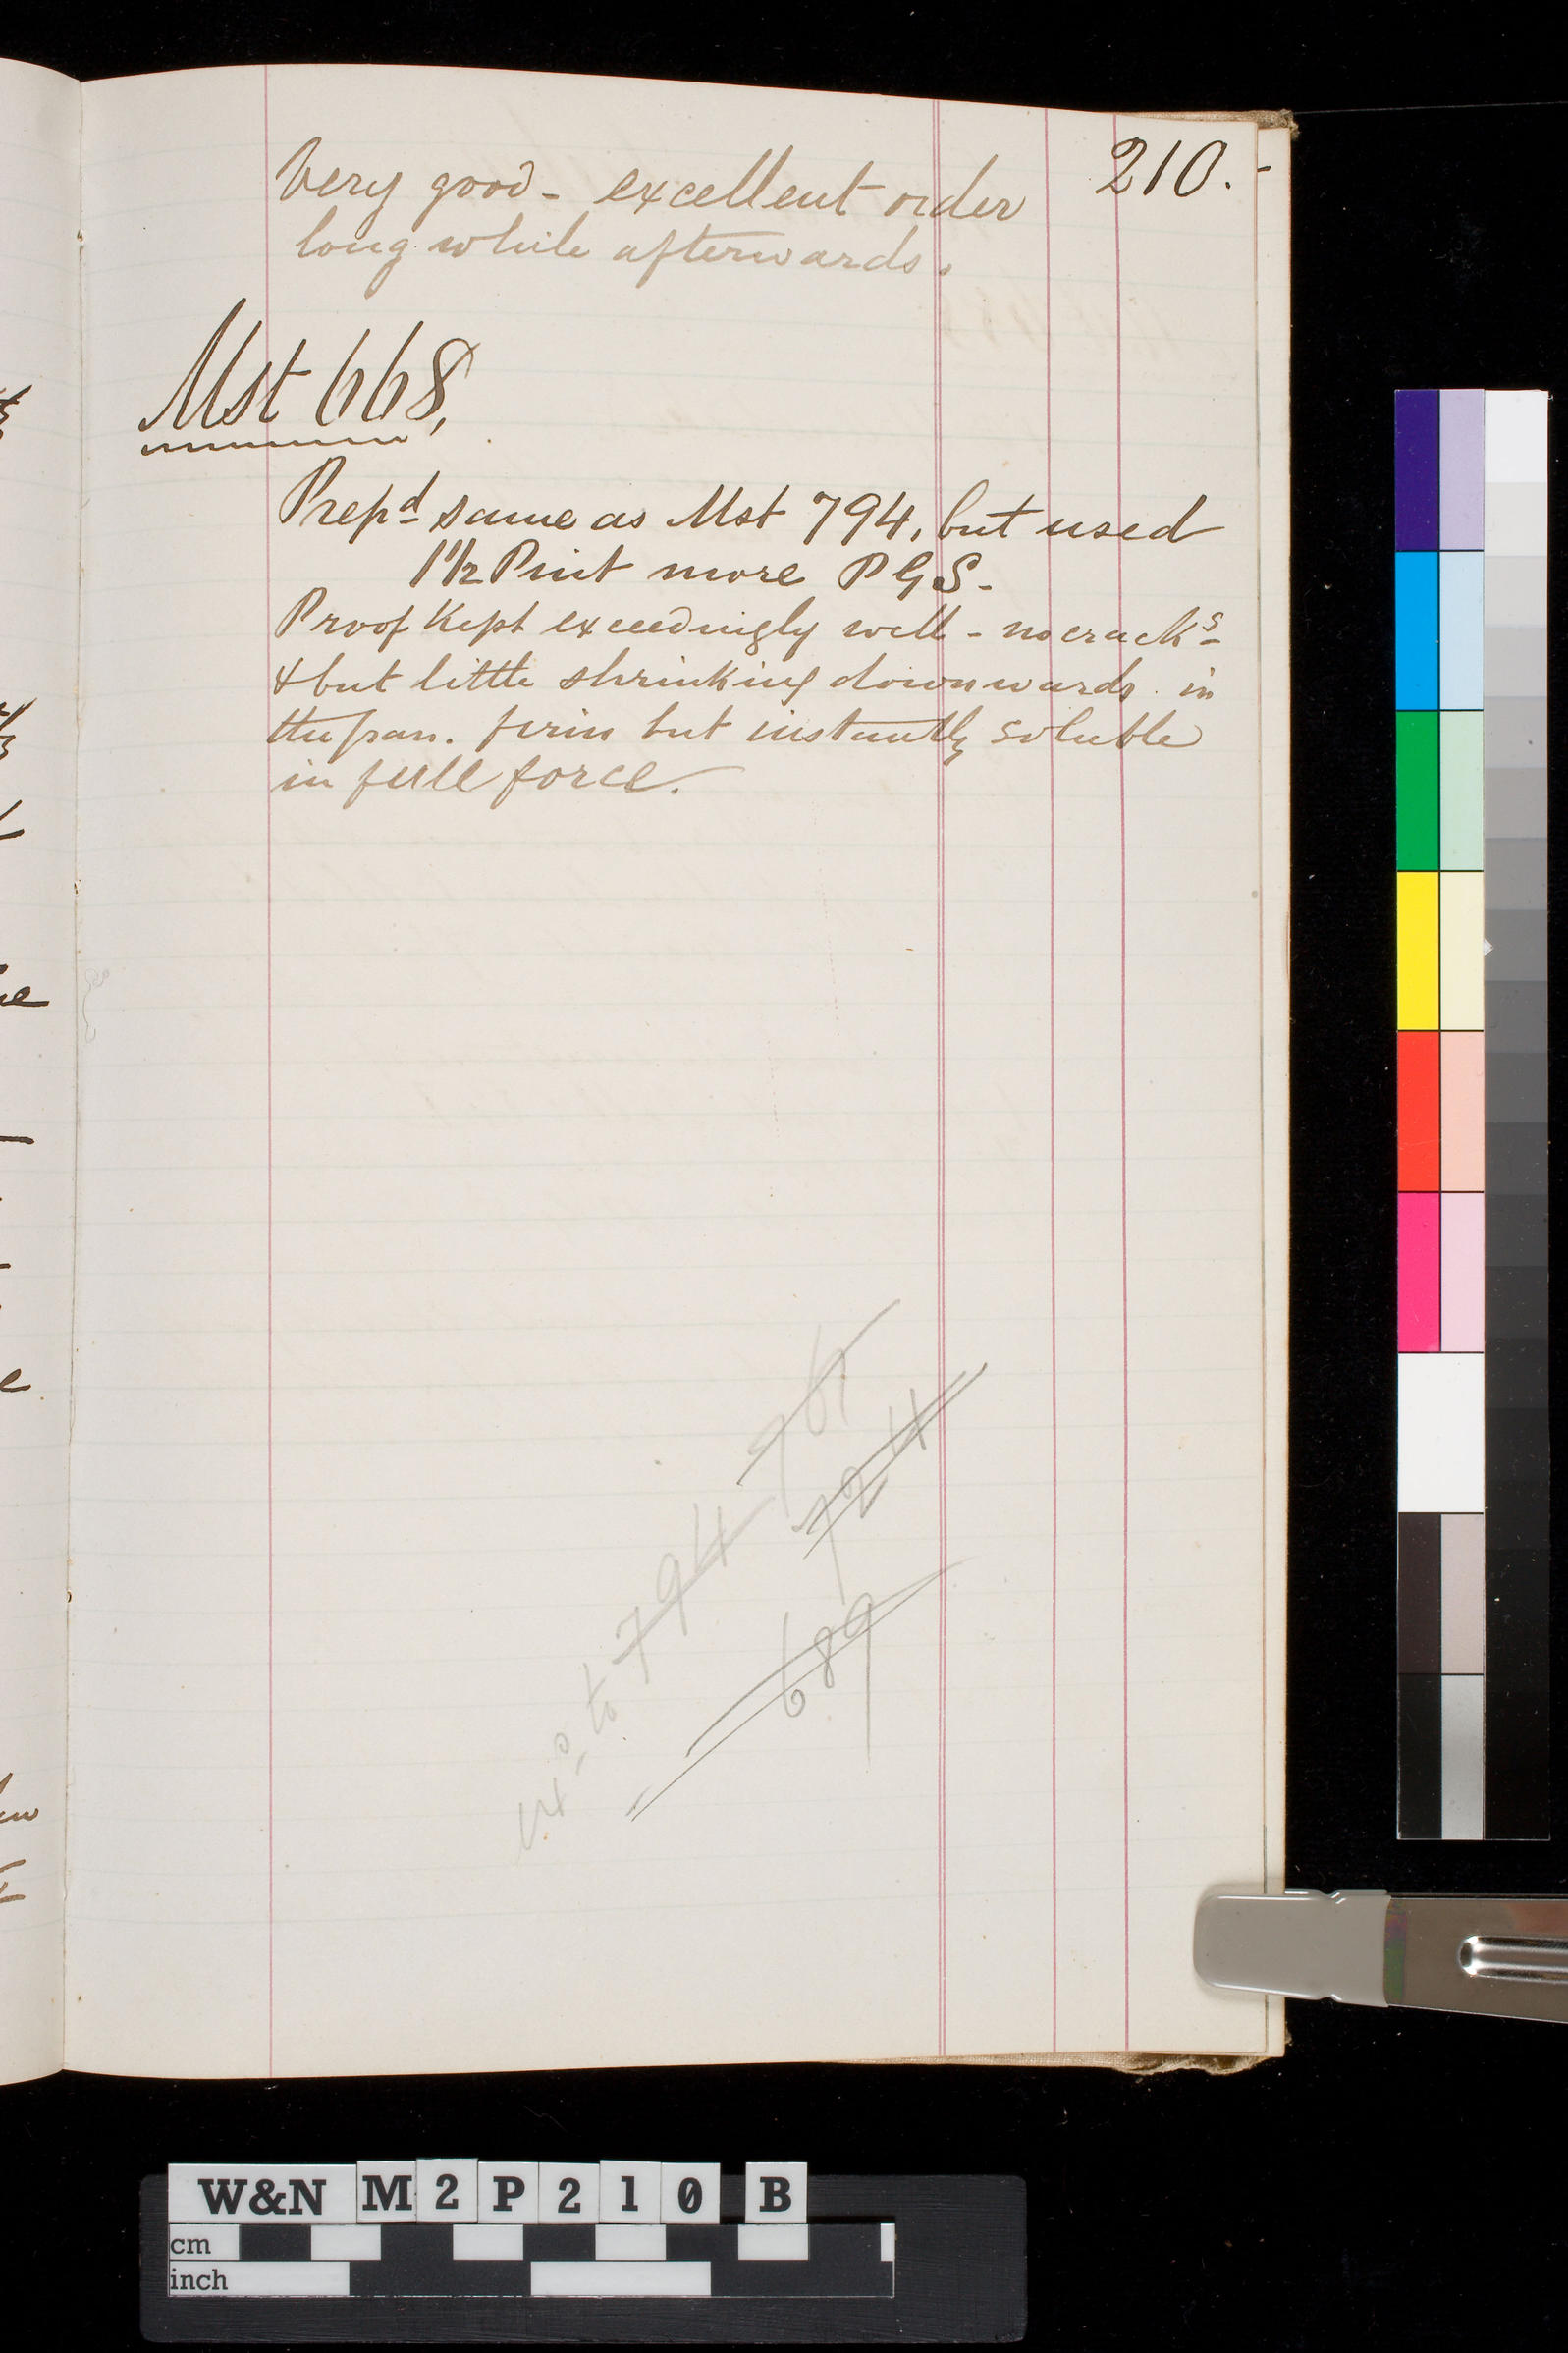 210.-
Very good - excellent order
long while afterwards.
Mst 668,
Prepd same as Mst 794, but used
1 1/2 Pint more P G S -
Proof Kept exceedingly well - no cracks -
& but little shrinking downwards in
the pan. firm but instantly soluble
in full force.
724
to 794
689
W&N M2P210 B
cm
inch